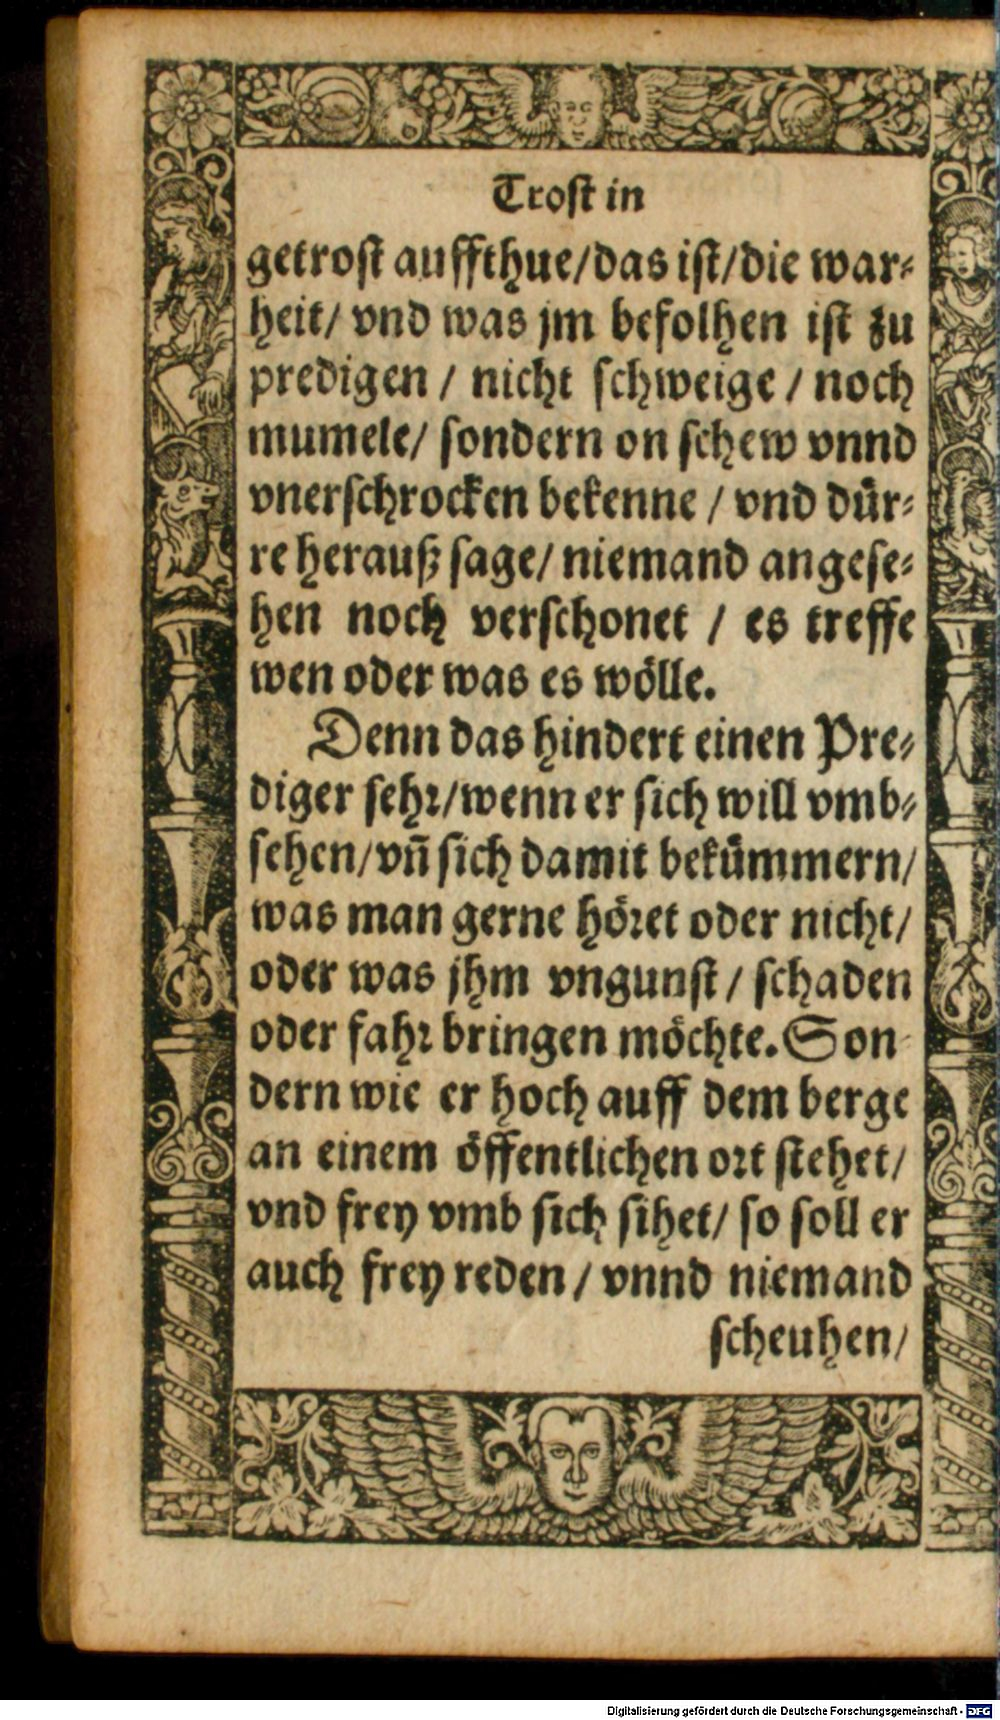 Trost in
getrost auffthue/das ist/die war⸗
heit/ vnd was jm befolhen ist zu
predigen / nicht schweige / noch
mumele/ sondern on schew vnnd
vnerschrocken bekenne / vnd dür⸗
re herauß sage/ niemand angese⸗
hen noch verschonet / es treffe
wen oder was es wölle.
Denn das hindert einen Pre⸗
diger sehr/wenn er sich will vmb⸗
sehen/vn̄ sich damit bekümmern/
was man gerne höret oder nicht/
oder was jhm vngunst / schaden
oder fahr bringen möchte. Son⸗
dern wie er hoch auff dem berge
an einem öffentlichen ort stehet/
vnd frey vmb sich sihet/ so soll er
auch frey reden / vnnd niemand
scheuhen/
Digitalisierung gefördert durch die Deutsche Forschungsgemeinschaft - DFG